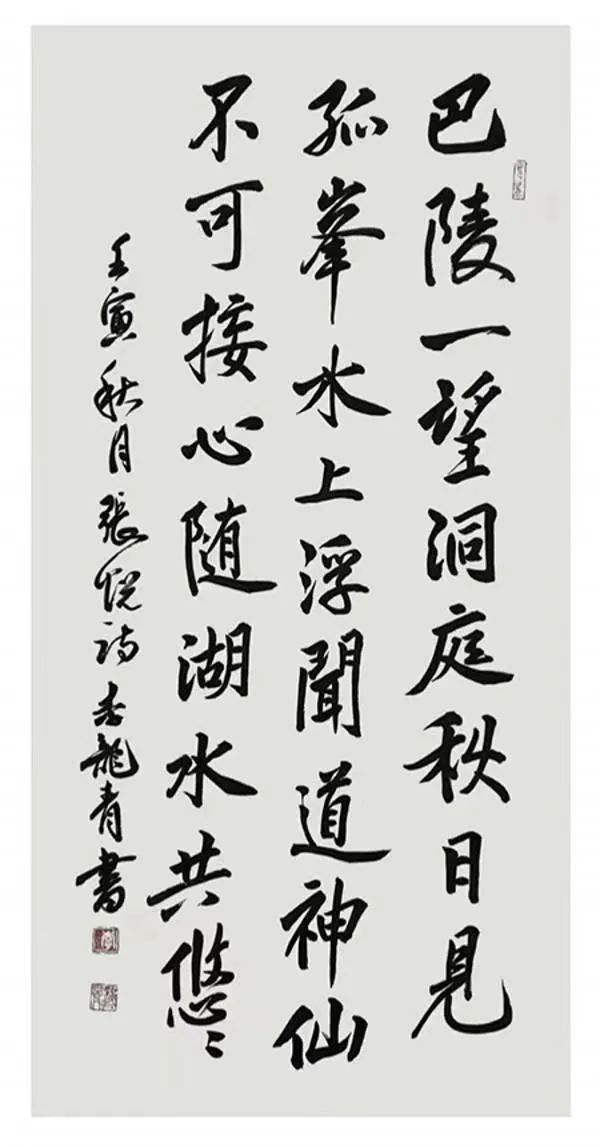 巴陵一望洞庭秋日見
孤峯水上浮聞道神仙
不可接心隨湖水共悠〻
壬寅秋月張悅詩李龍青書